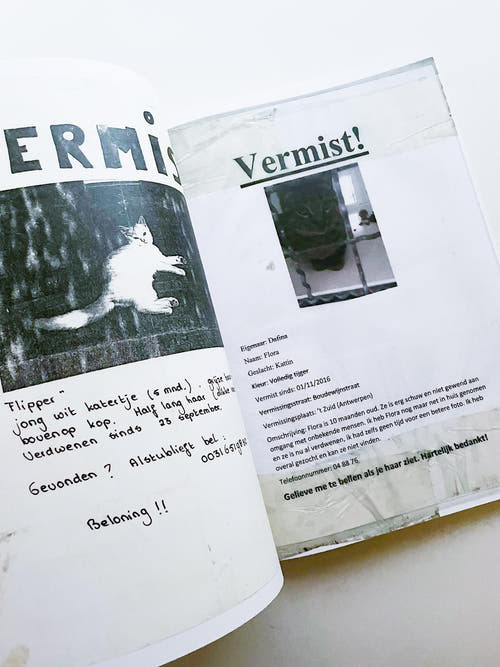 ERMIS
"Flipper"
jong wit katertje (5 mnd.)
bovenop kop. Half lang haar
Verdwenen sinds 23 september.
Gevonden? Alstublieft bel:
Beloning!!
Vermist!
Eigenaar: Dafina
Naam: Flora
Geslacht: Kattin
Kleur: Volledig tijger
Vermist sinds: 01/11/2016
Vermissingsstraat: Boudewijnstraat
Vermissingsplaats: 't Zuid (Antwerpen)
Omschrijving: Flora is 10 maanden oud. Ze is erg schuw en niet gewend aan
omgang met onbekende mensen. Ik heb Flora nog maar net in huis genomen
en ze is nu al verdwenen, ik had zelfs geen tijd voor een betere foto. Ik heb
overal gezocht en kan ze niet vinden.
Telefoonnummer: 04 88 76
Gelieve me te bellen als je haar ziet. Hartelijk bedankt!